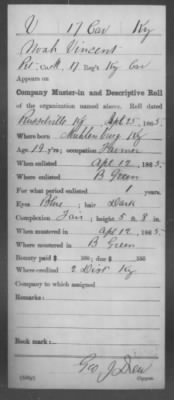 V 17 Cav Ky
Noah Vincent
Pvt. Co. H, 17 Reg't Ky. Cav
Appears on
Company Muster-in and Descriptive Roll
of the organization named above. Roll dated
Russellville Ky Apl 25, 1865.
Where born Muhlenburg Ky
Age 19 y'rs; occupation Farmer
When enlisted Apl 12, 1865.
Where enlisted B Green
For what period enlisted 1 years.
Eyes Blue; hair Dark
Complexion Fair; height 5 ft. 8 in.
When mustered in Apl 12, 1865.
Where mustered in B Green
Bounty paid $ 100; due $ 100
Where credited 2 Dist Ky
Company to which assigned
Remarks:
Book mark:
Geo J Drew
Copyist.